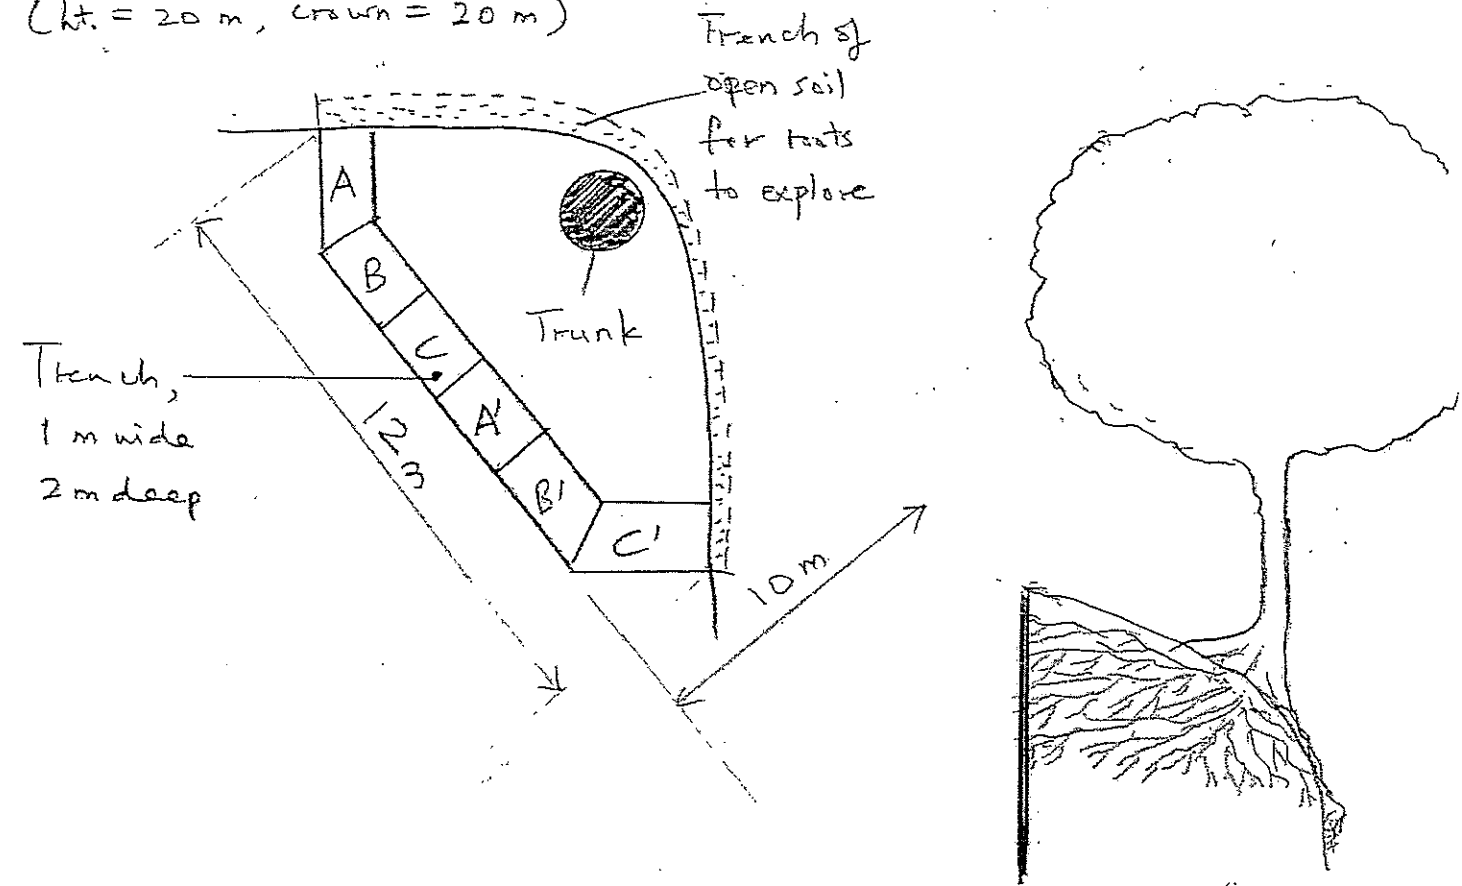 (ht. = 20 m, crown = 20 m)
Trench of
open soil
for roots
to explore
A
B
C
A'
B'
C'
Trunk
Trench,
1 m wide
2 m deep
12 m
10 m